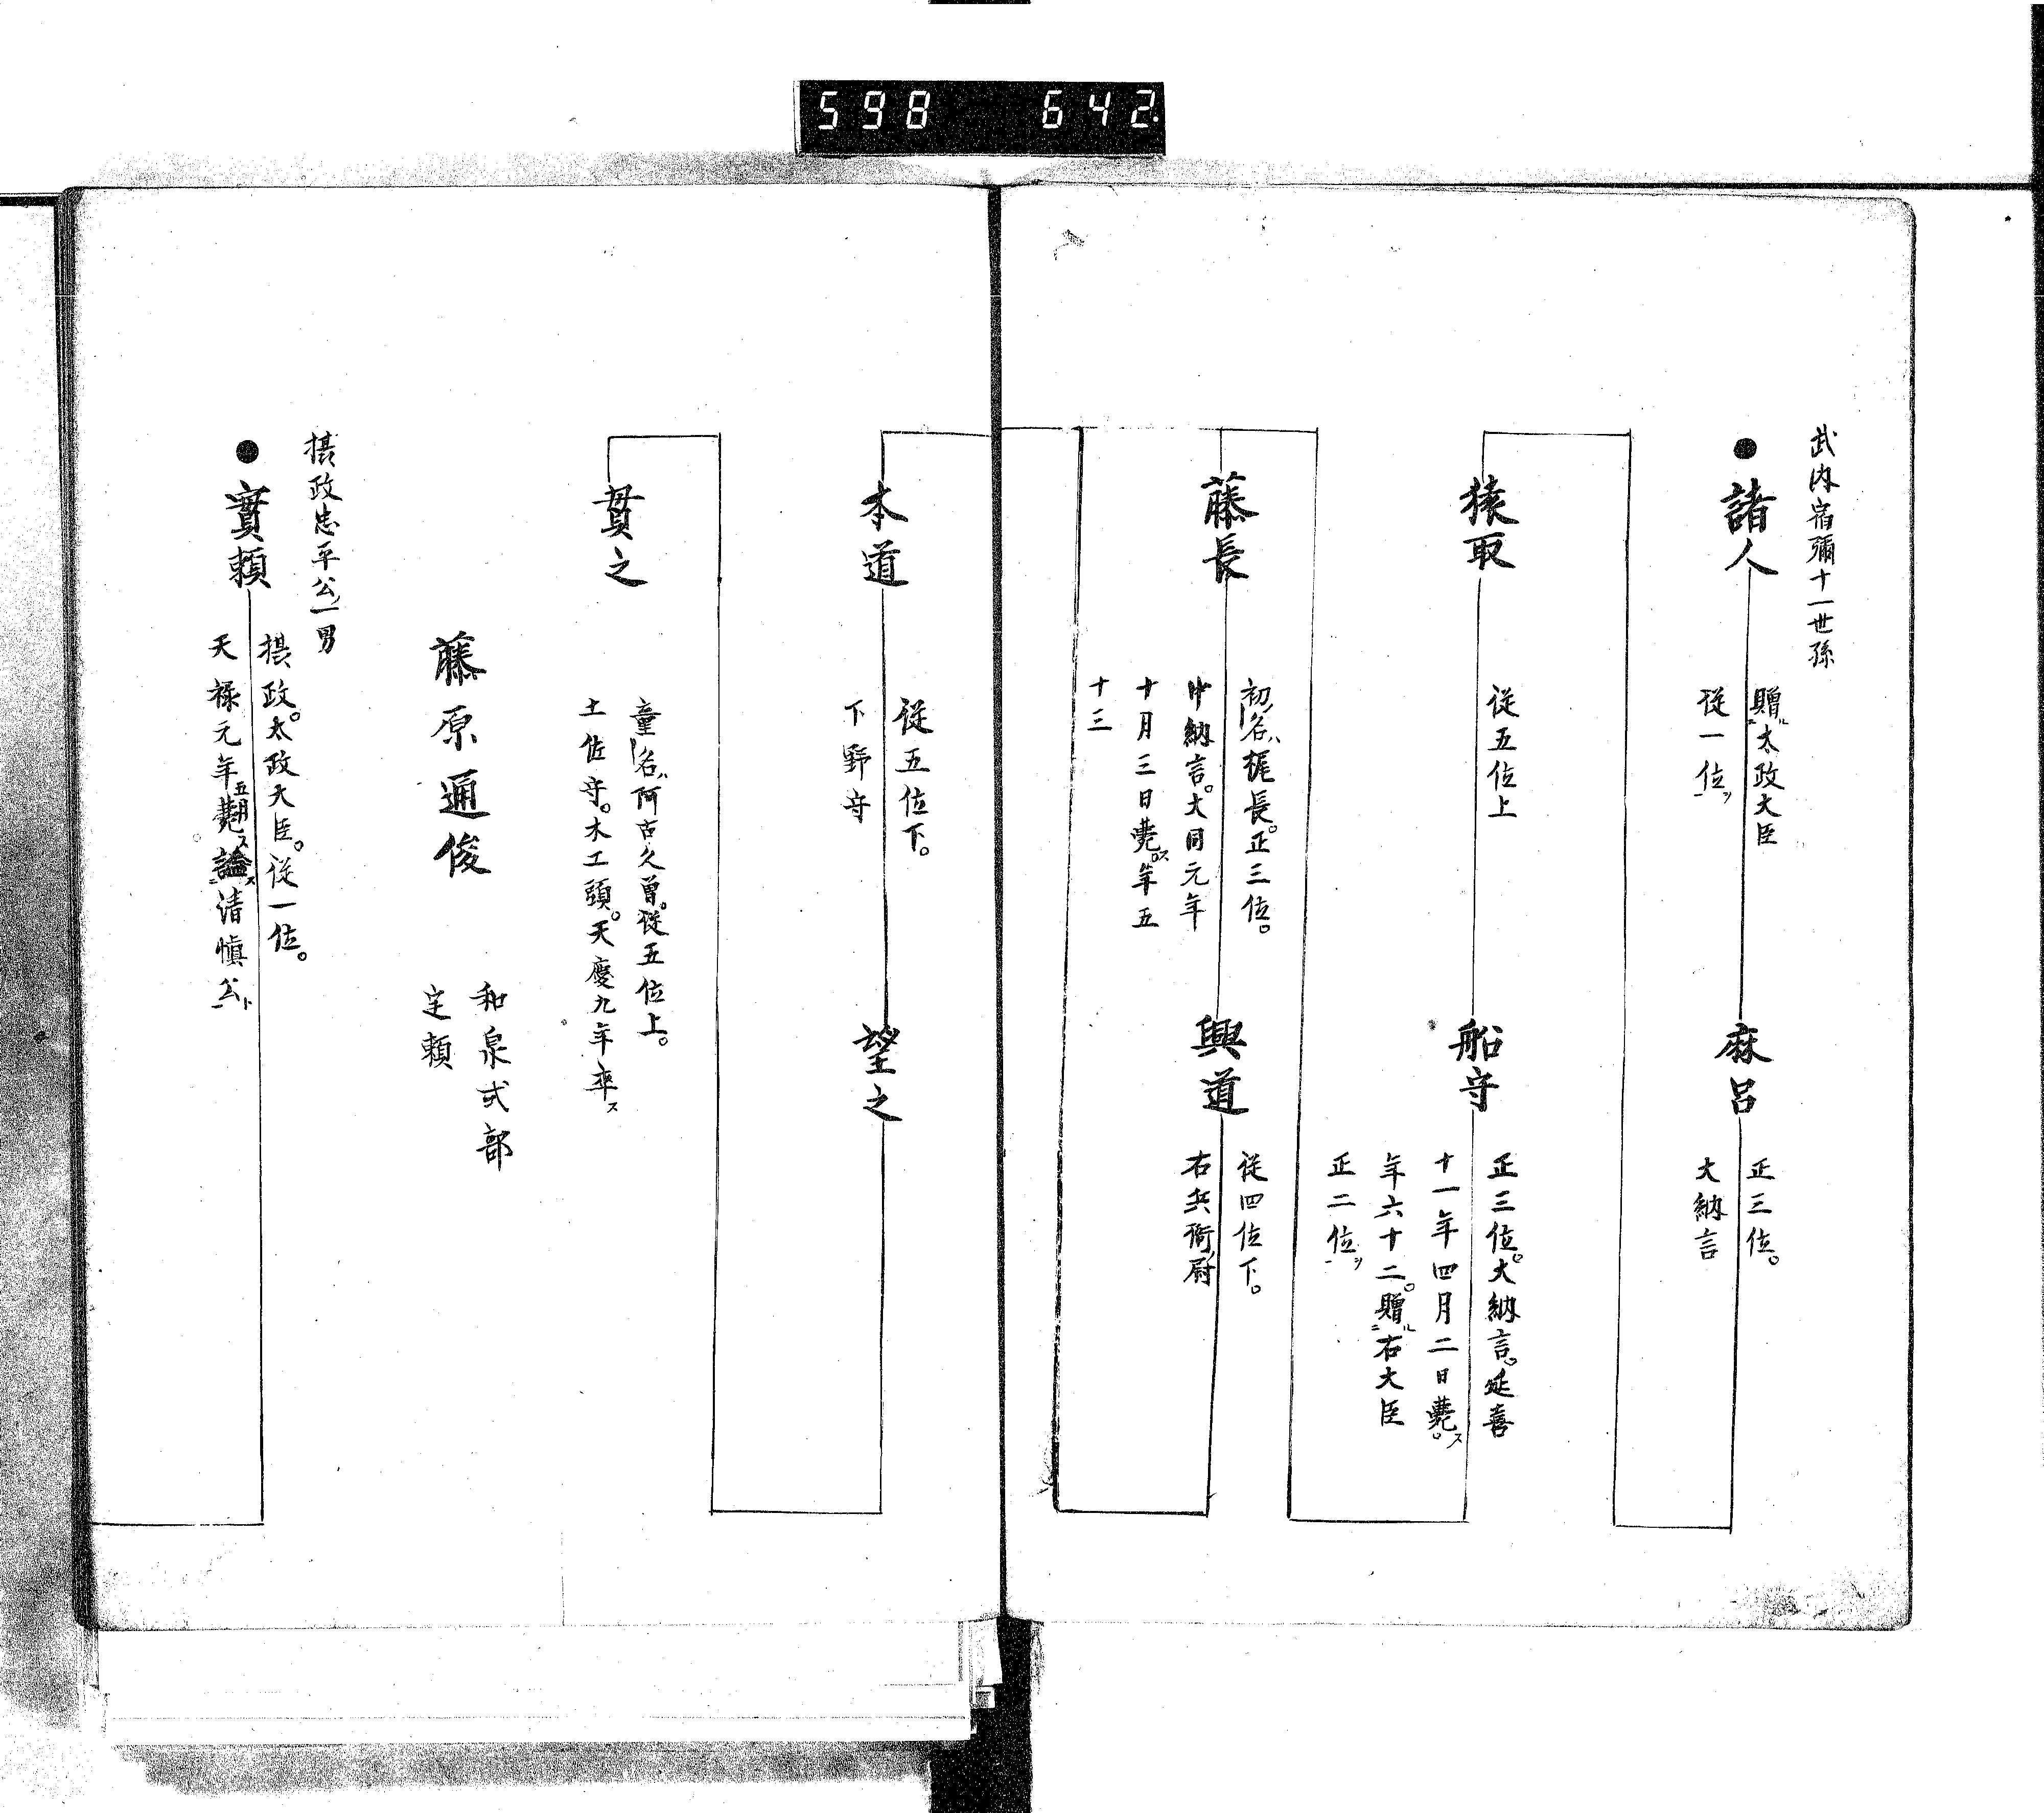 598 642
武内宿彌十一世孫
●諸人
贈ル二太政大臣
従一位ヲ一
麻呂
正三位。
大納言
猿取
従五位上
船守
正三位。大納言。延喜
十一年四月二日薨ス。
年六十二。贈ル二右大臣
正二位ヲ一
藤長
初ノ名ハ梶長。正三位。
中納言。大同元年
十月三日薨ス。年五
十三
興道
従四位下。
右兵衛ノ尉
本道
従五位下。
下野守
望之
貫之
童名ハ阿古久曽。従五位上。
土佐守。木工頭。天慶九年卒ス。
藤原通俊
和泉式部
定頼
摂政忠平公ノ一男
●實頼
摂政。太政大臣。従一位。
天禄元年五月薨ス。謚ス二清愼公ト一